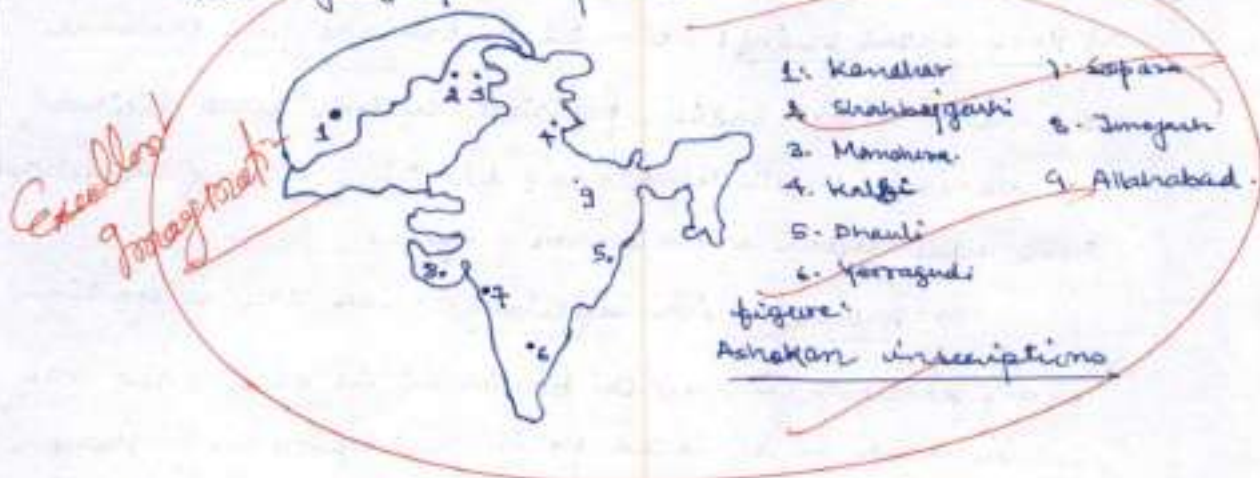 Excellent
Imagination
1
2 3
4
9
5.
8.
7
6
1. Kandhar
2. Shahbajgarhi
3. Manshera.
4. Kalsi
5. Dhauli
6. Yerragudi
7. Sopara
8. Junagarh
9. Allahabad.
figure:
Ashokan inscriptions